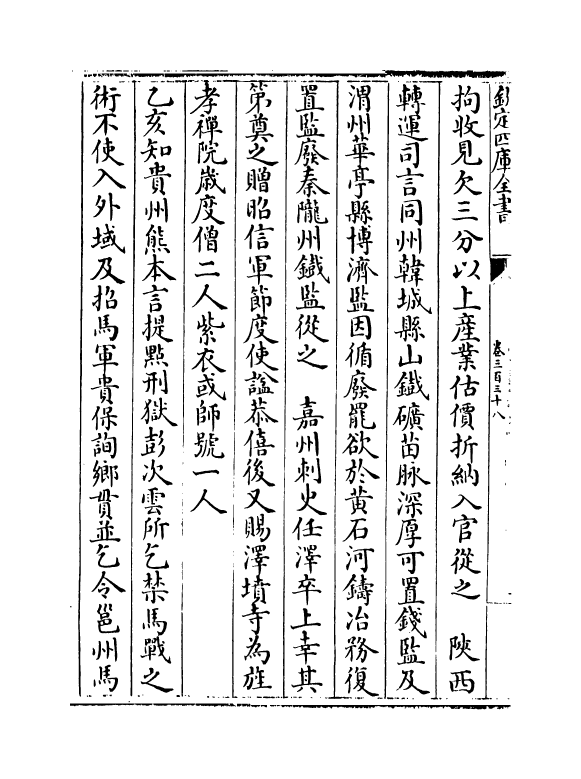 欽定四庫全書
卷三百三十八
拘收見欠三分以上產業估價折納入官從之　陜西
轉運司言同州韓城縣山鐵礦苗脉深厚可置錢監及
渭州華亭縣博濟監因循廢罷欲於黄石河鑄冶務復
置監廢秦隴州鐵監從之　嘉州刺史任澤卒上幸其
第奠之贈昭信軍節度使諡恭僖後又賜澤墳寺為旌
孝禪院歲度僧二人紫衣或師號一人
乙亥知貴州熊本言提點刑獄彭次雲所乞禁馬戰之
術不使入外域及招馬軍貴保詢鄉貫並乞令邕州馬